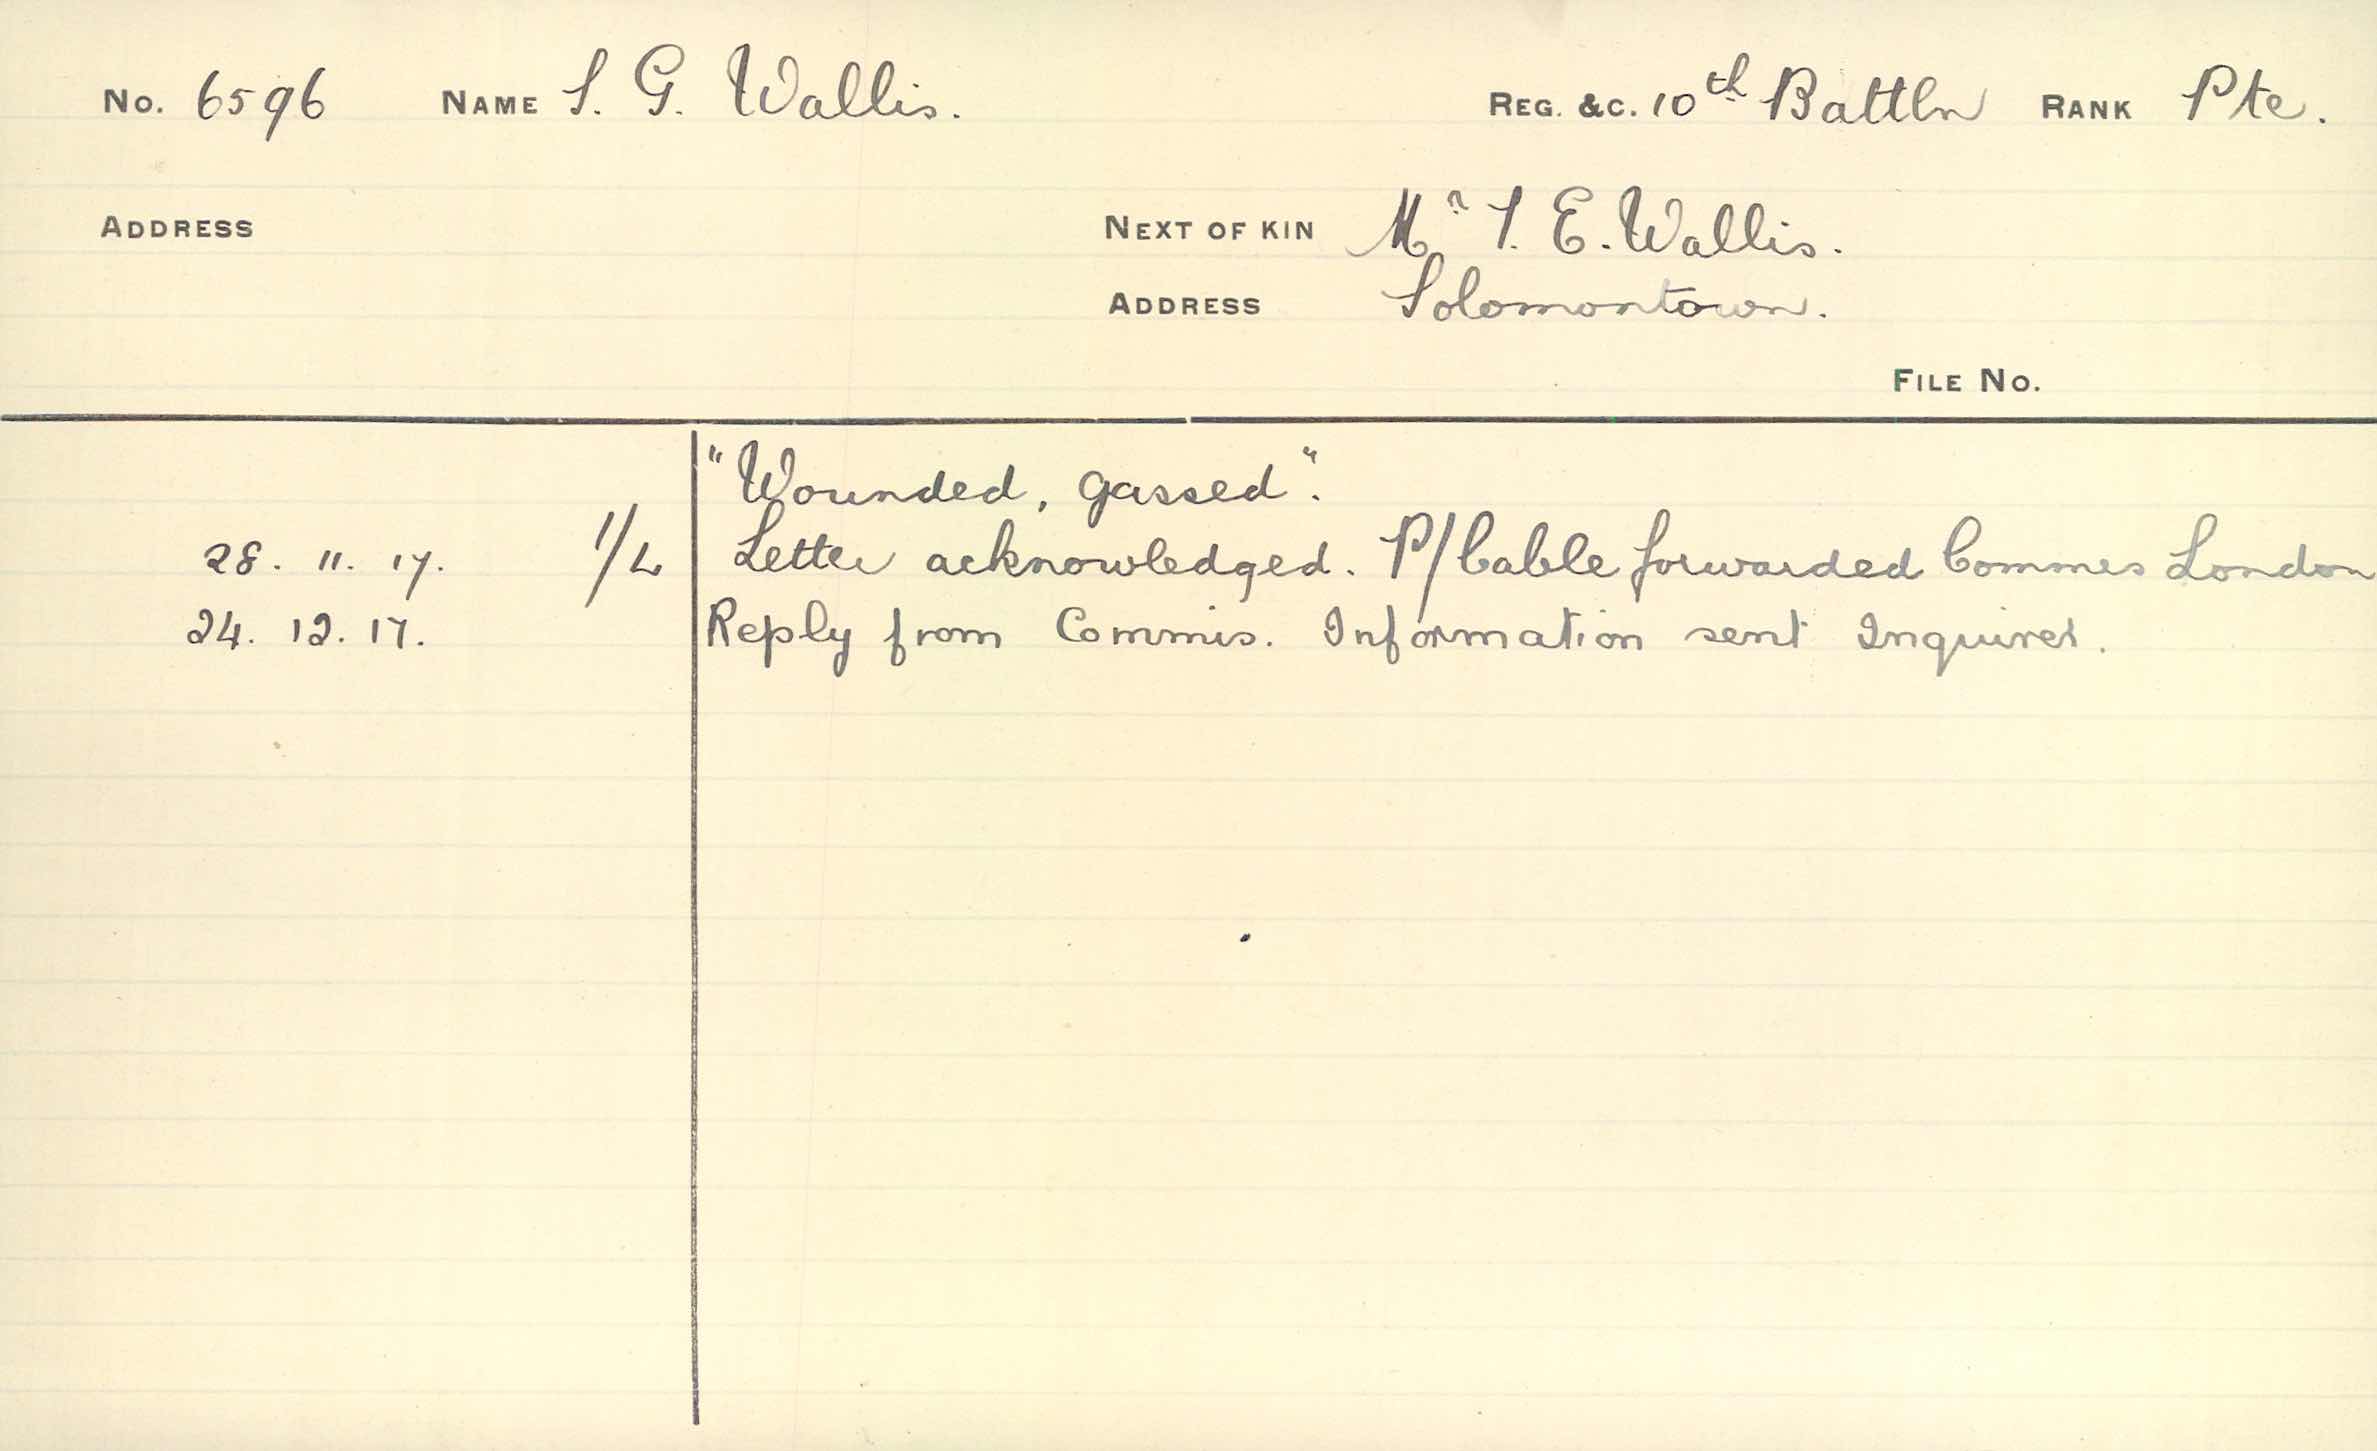 No. 6596 NAME S. G. Wallis. REG. &C. 10th Battln RANK Pte.
ADDRESS NEXT OF KIN Mr S. E. Wallis.
ADDRESS Solomontown.
FILE No.
"Wounded, gassed".
28. 11. 17. 1/L Letter acknowledged. P/Cable forwarded Commes London
24. 12. 17. Reply from Commis. Information sent Inquirer.